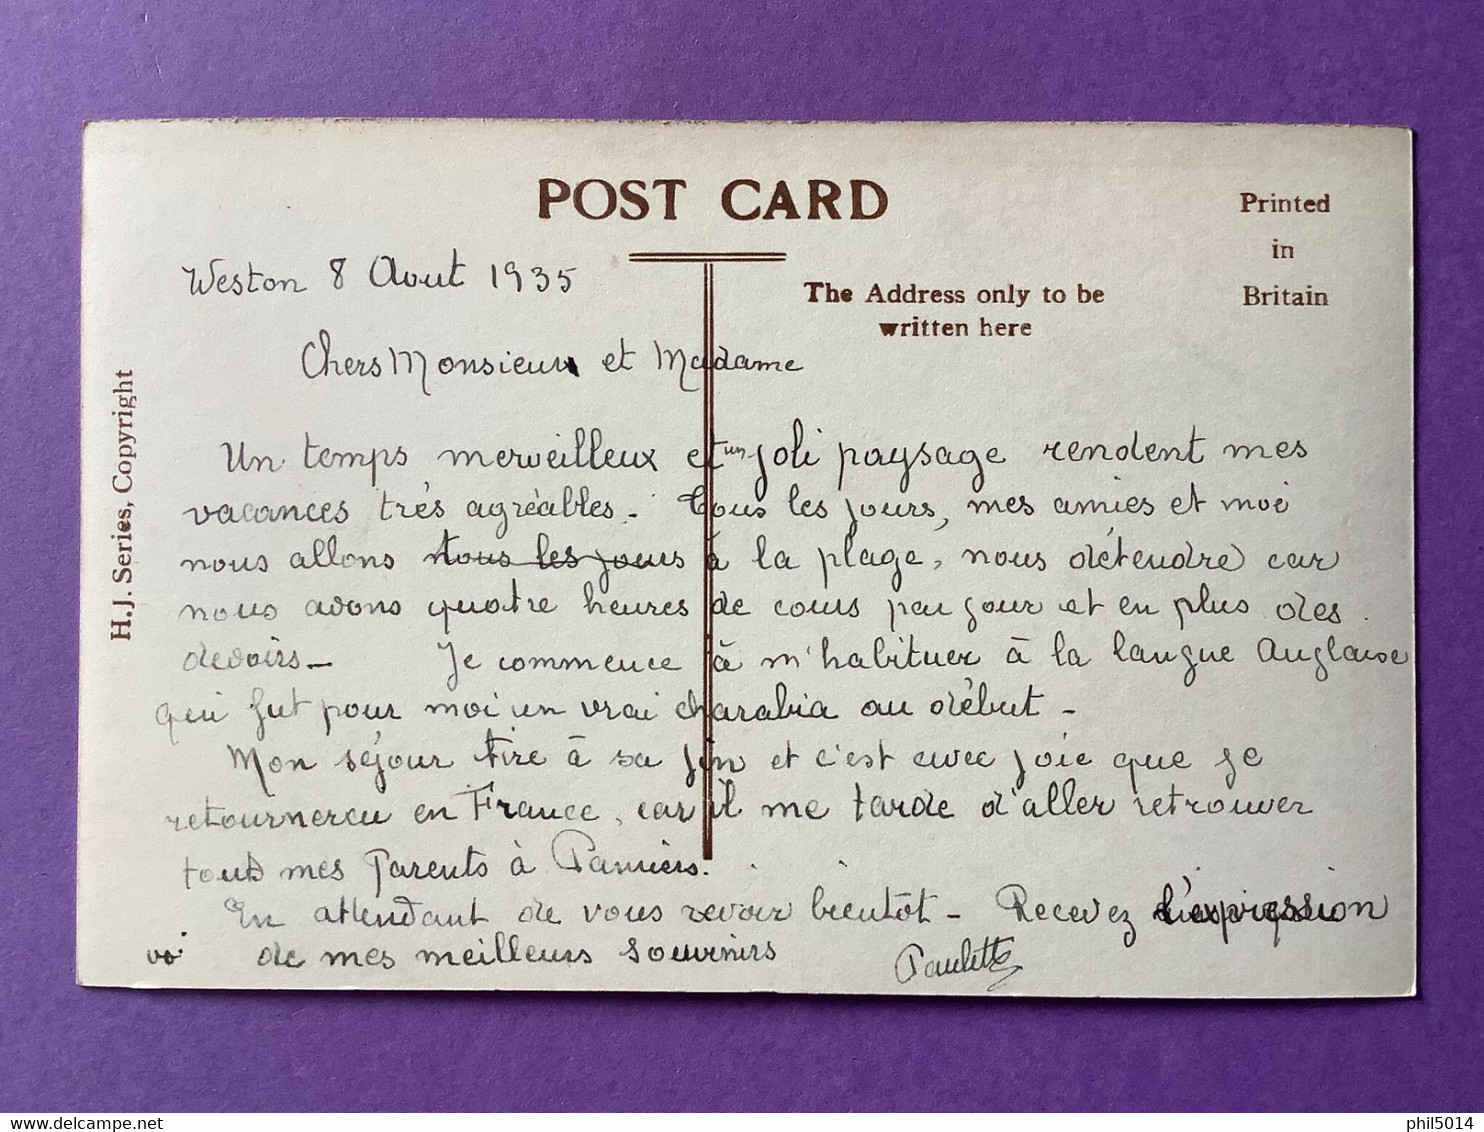 POST CARD
Printed
in
Britain
The Address only to be
written here
H.J. Series, Copyright
Weston 8 Aout 1935
Chers Monsieur et Madame
Un temps merveilleux et un joli paysage rendent mes
vacances très agréables. Tous les jours, mes amies et moi
nous allons tous les jours à la plage, nous détendre car
nous avons quatre heures de cours par jour et en plus des
devoirs - Je commence à m'habituer à la langue Anglaise
qui fut pour moi un vrai charabia au début -
Mon séjour tire à sa fin et c'est avec joie que je
retournerai en France, car il me tarde d'aller retrouver
tous mes Parents à Pamiers.
En attendant de vous revoir bientôt - Recevez l'expression
de mes meilleurs souvenirs
Paulette
delcampe.net
phil5014